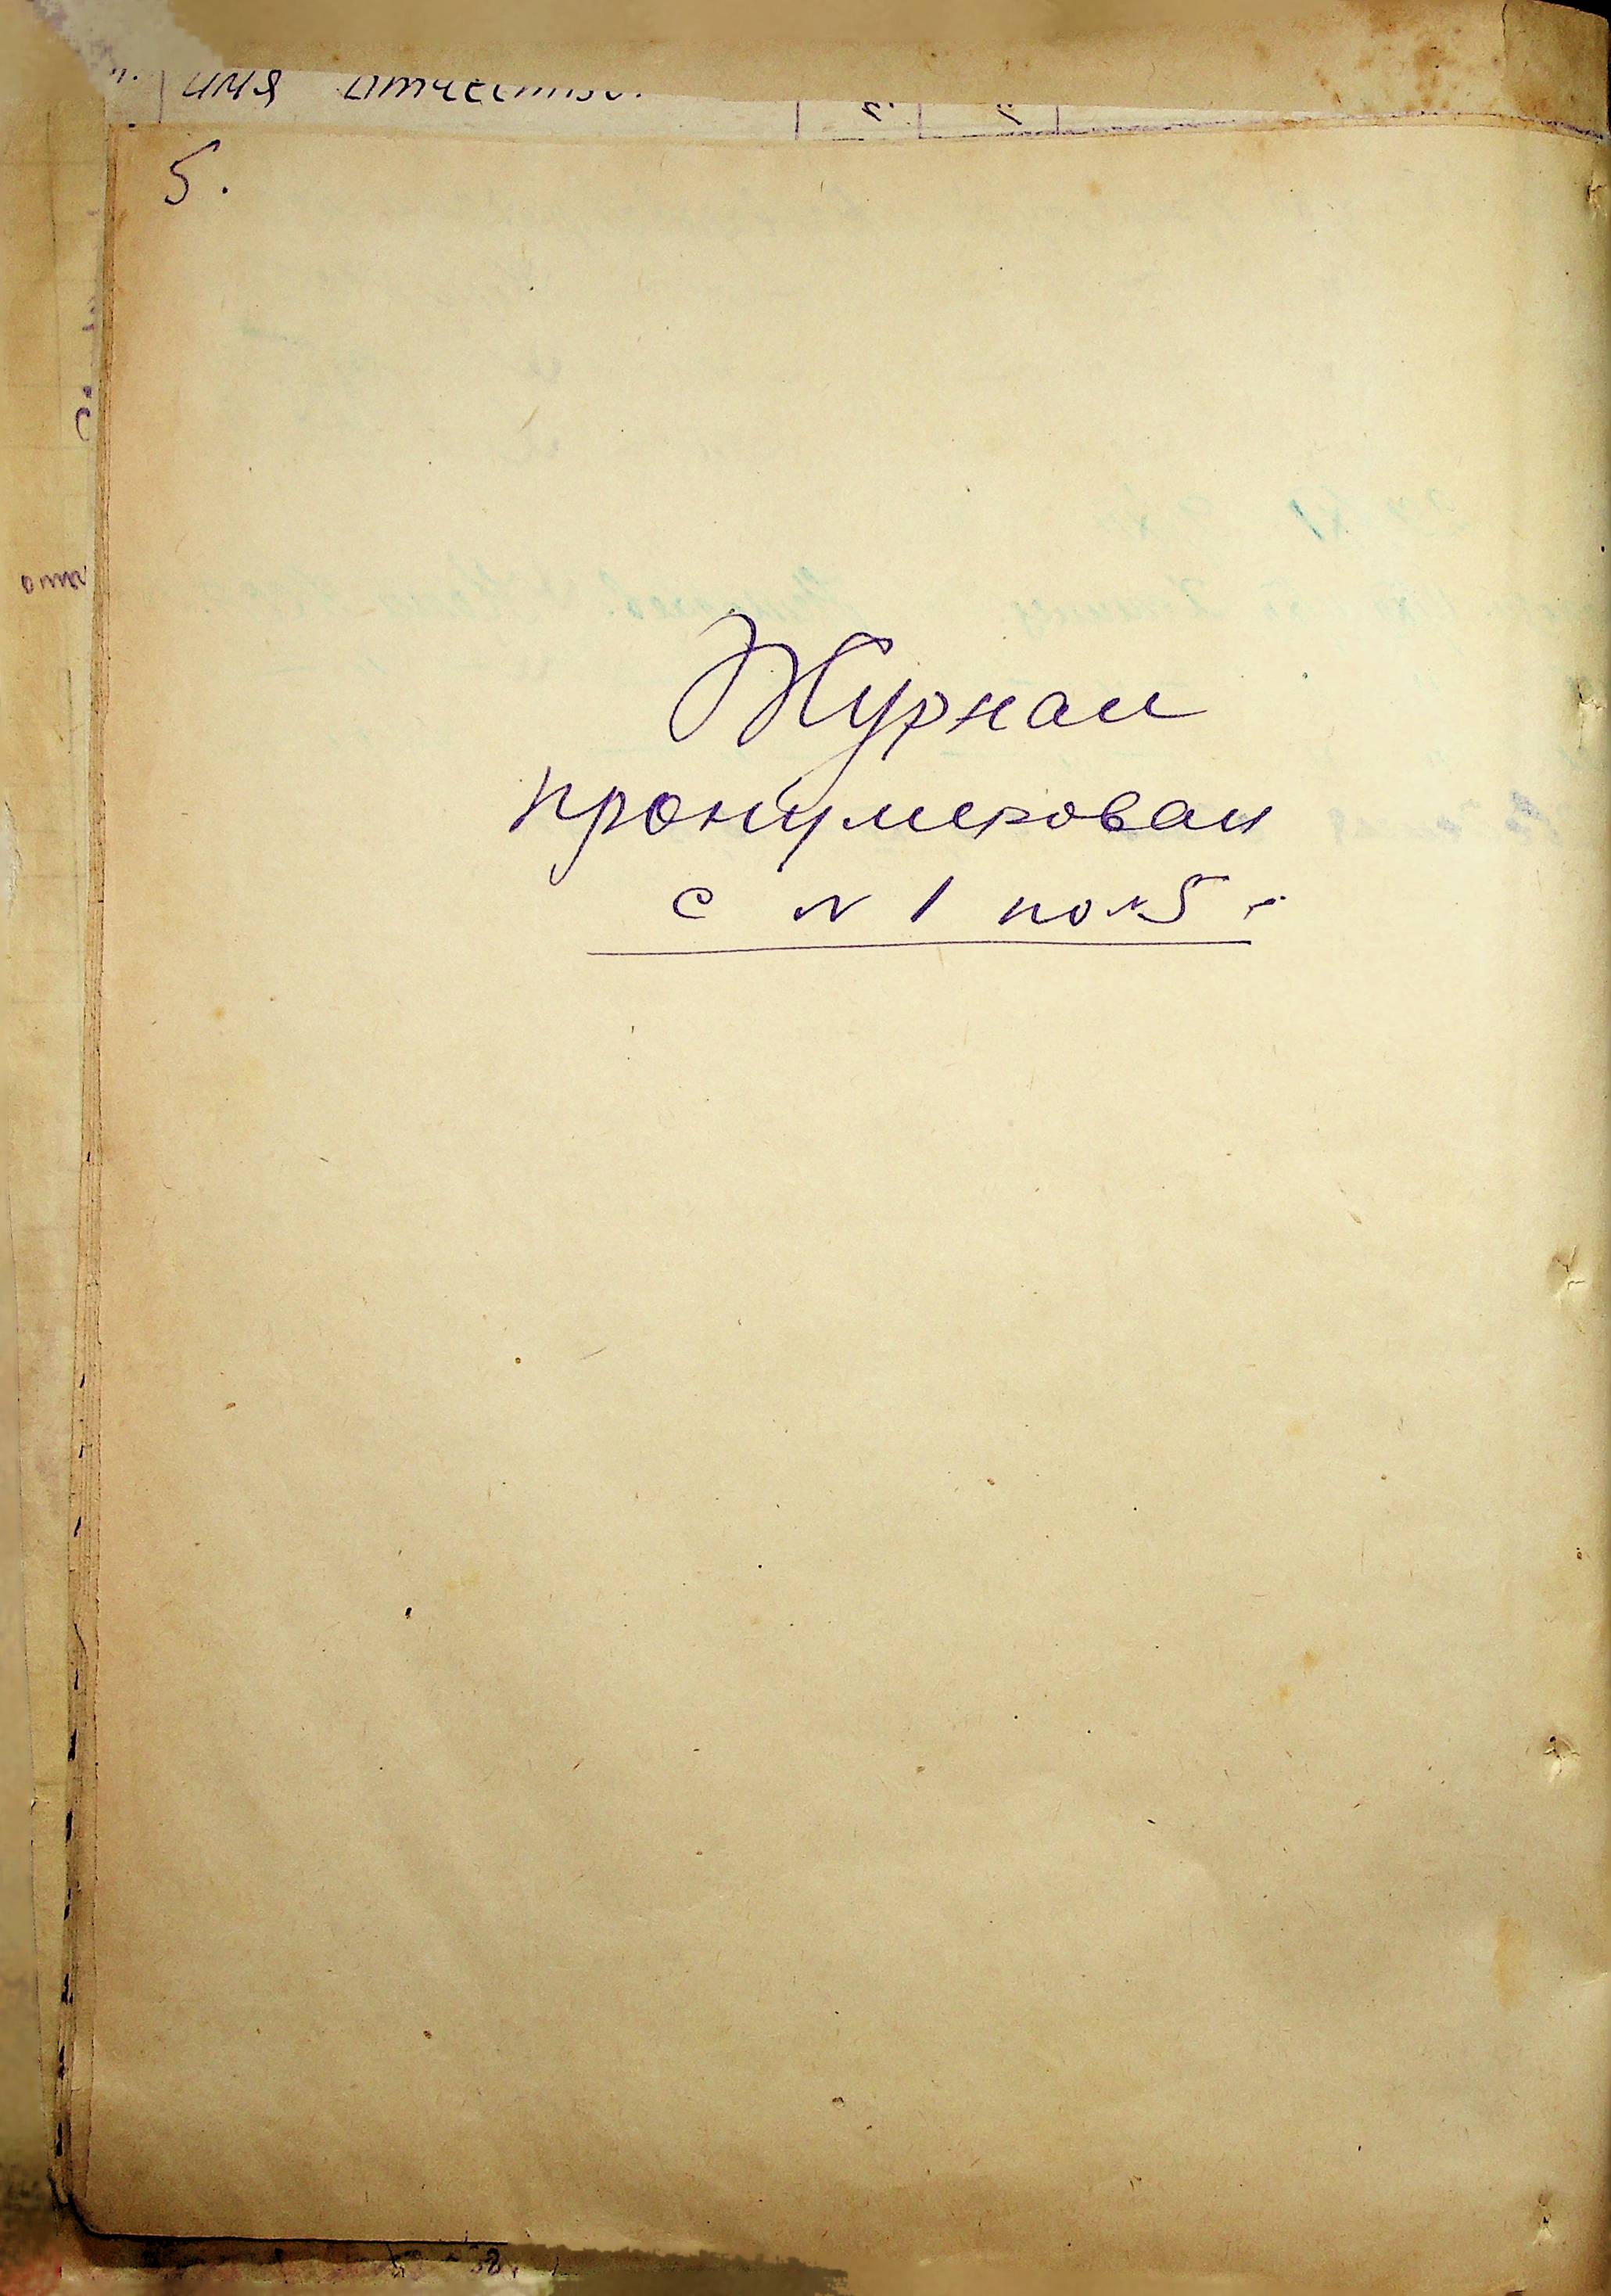 имя отчество.
5.
Журнал
пронумерован
с № 1 по № 5 -